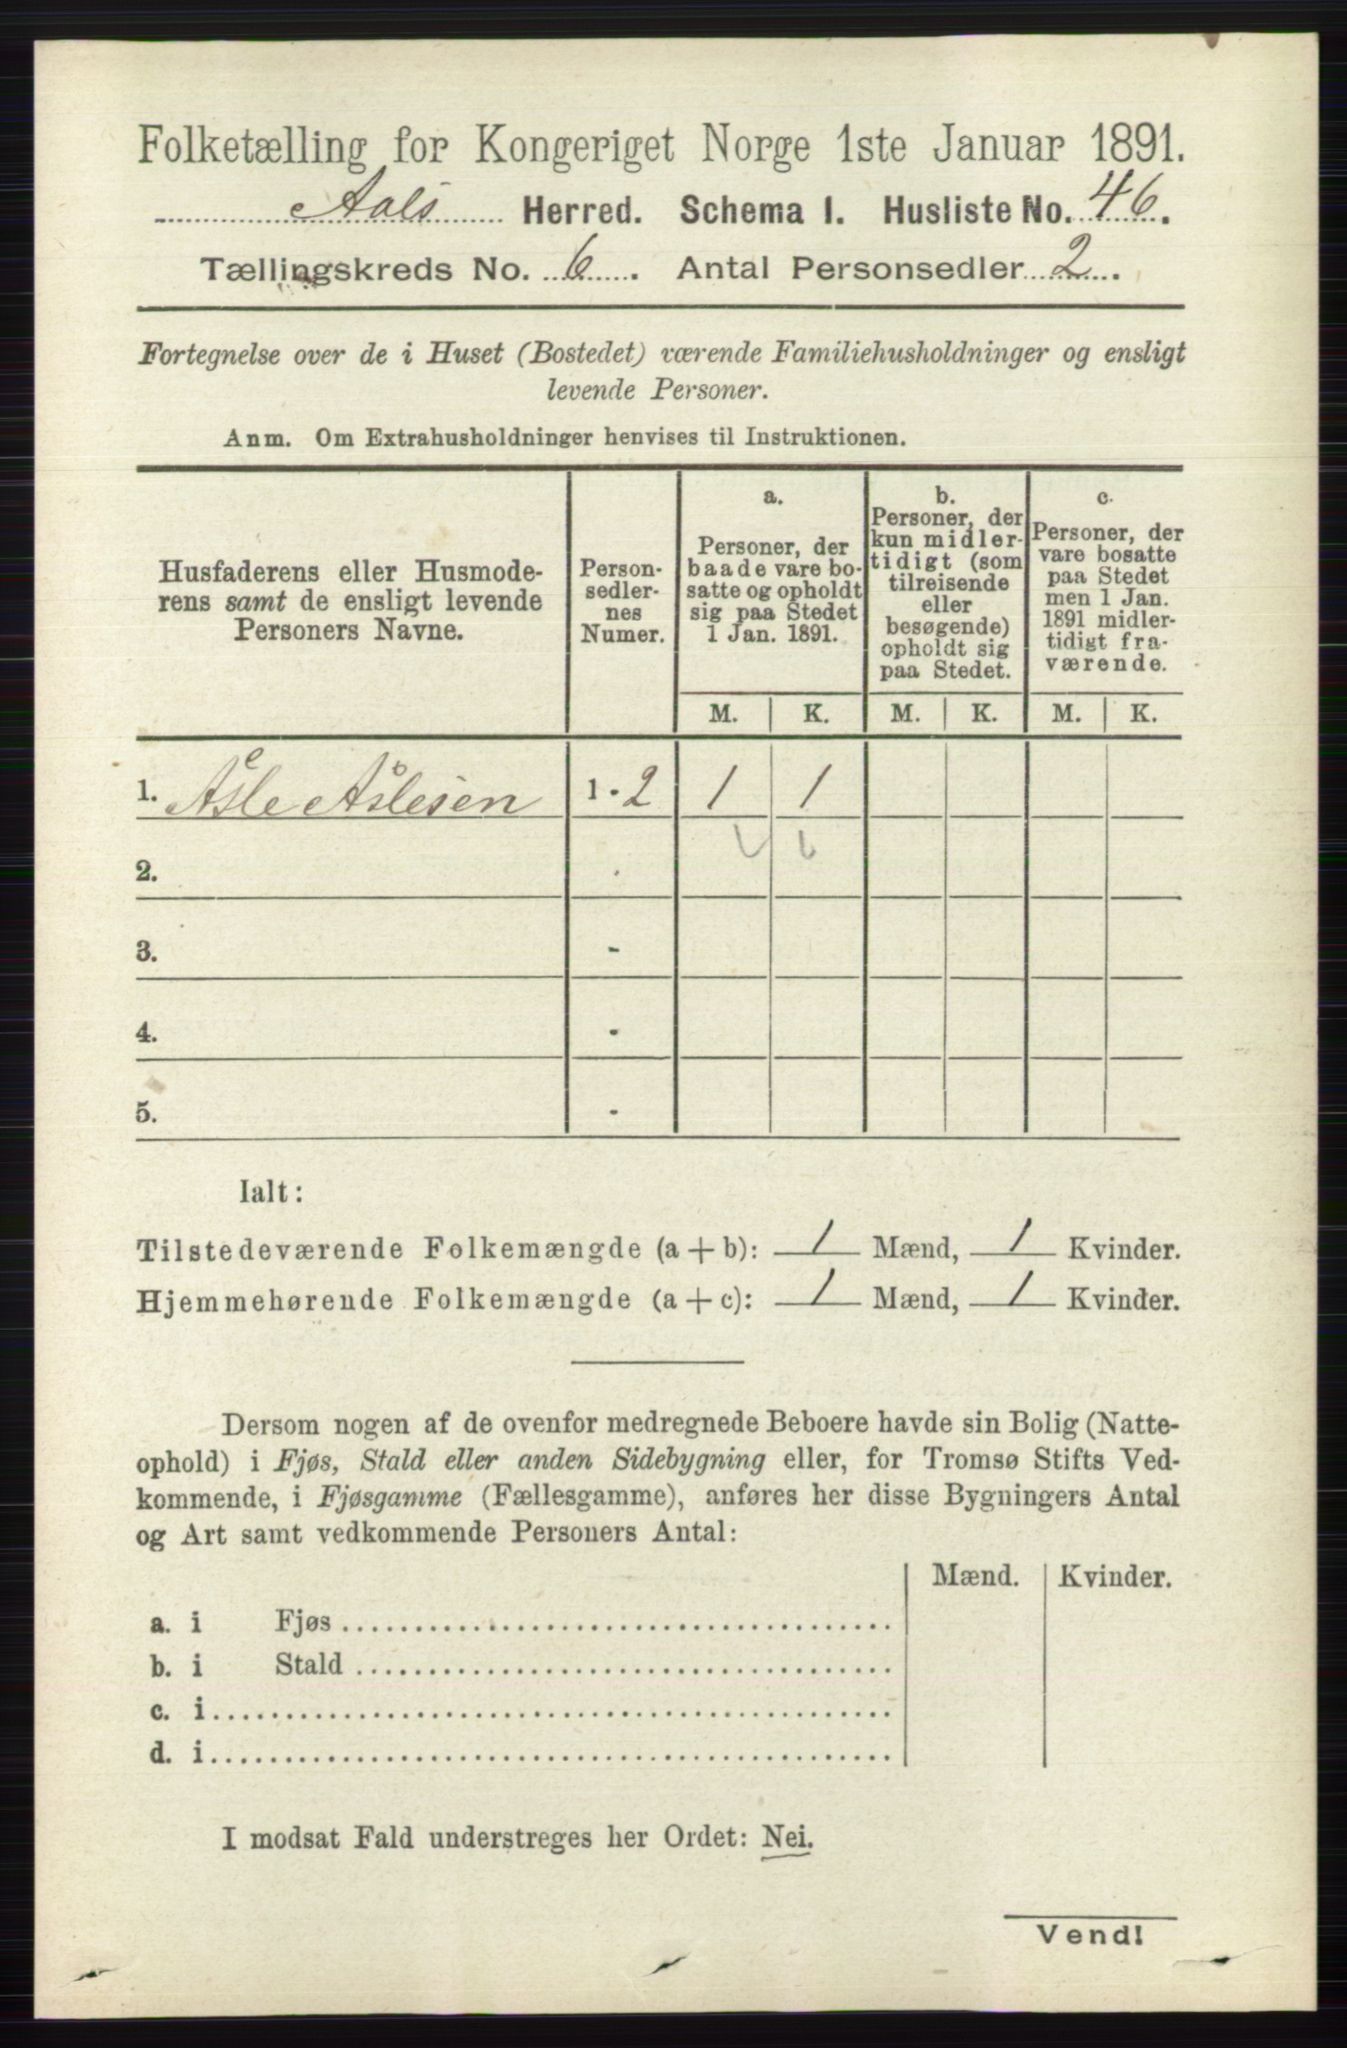 Folketælling for Kongeriget Norge 1ste Januar 1891.
Aals Herred. Schema I. Husliste No. 46.
Tællingskreds No. 6. Antal Personsedler 2.
Fortegnelse over de i Huset (Bostedet) værende Familiehusholdninger og ensligt
levende Personer.
Anm. Om Extrahusholdninger henvises til Instruktionen.
Husfaderens eller Husmode-
rens samt de ensligt levende
Personers Navne.
Person-
sedler-
nes
Numer.
a.
Personer, der
baade vare bo-
satte og opholdt
sig paa Stedet
1 Jan. 1891.
b.
Personer, der
kun midler-
tidigt (som
tilreisende
eller
besøgende)
opholdt sig
paa Stedet.
c.
Personer, der
vare bosatte
paa Stedet
men 1 Jan.
1891 midler-
tidigt fra-
værende.
M. K. M. K. M. K.
1. Åsle Åslesen 1 - 2 1 1
2.
3. -
4. -
5. -
Ialt:
Tilstedeværende Folkemængde (a + b): 1 Mænd, 1 Kvinder.
Hjemmehørende Folkemængde (a + c): 1 Mænd, 1 Kvinder.
Dersom nogen af de ovenfor medregnede Beboere havde sin Bolig (Natte-
ophold) i Fjøs, Stald eller anden Sidebygning eller, for Tromsø Stifts Ved-
kommende, i Fjøsgamme (Fællesgamme), anføres her disse Bygningers Antal
og Art samt vedkommende Personers Antal:
Mænd. Kvinder.
a. i Fjøs
b. i Stald
c. i
d. i
I modsat Fald understreges her Ordet: Nei.
Vend!